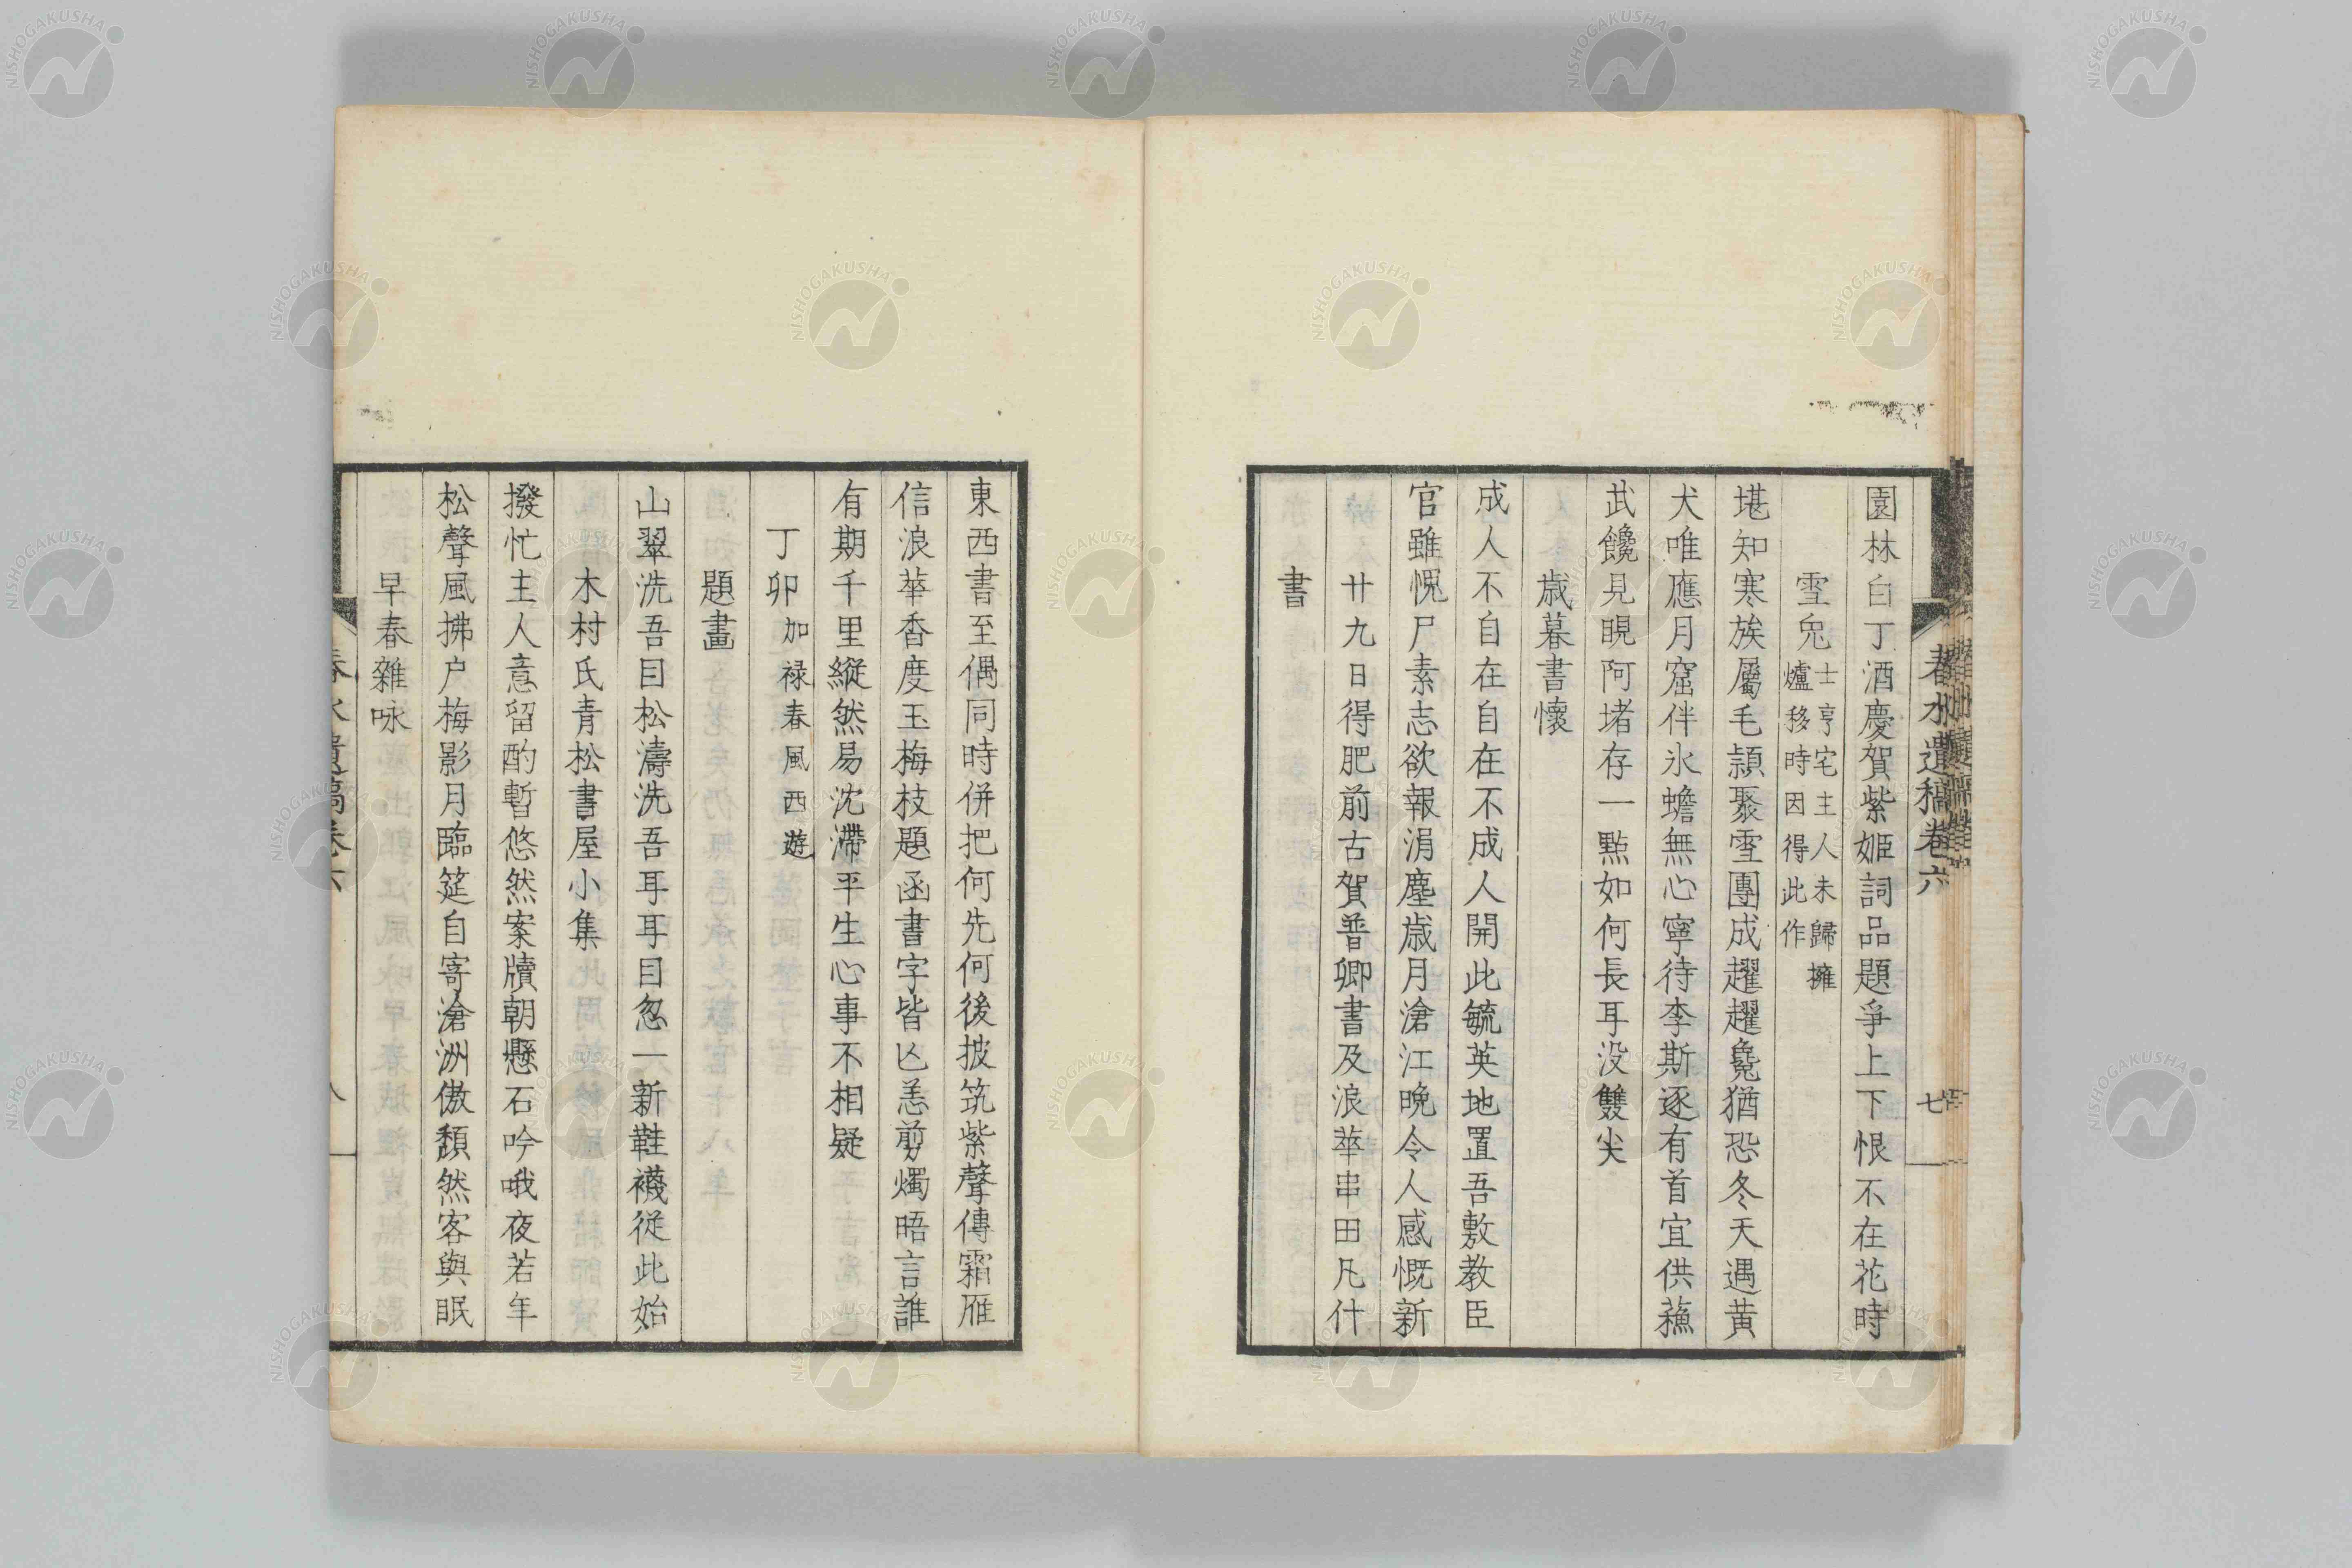 園林白丁酒慶賀紫姬詞品題爭上下恨不在花時
雪兔士亨宅主人未歸擁
爐移時因得此作
堪知寒族屬毛頴聚雪團成趯趯毚猶恐冬天遇黃
犬唯應月窟伴氷蟾無心寧待李斯逐有首宜供蘓
武饞見睍阿堵存一㸃如何長耳没雙尖
歳暮書懷
成人不自在自在不成人開此毓英地置吾敷教臣
官雖愧尸素志欲報涓塵歳月滄江晚令人感慨新
廿九日得肥前古賀普卿書及浪華串田凡什
書
春水遺稿卷六
七
東西書至偶同時併把何先何後披筑紫聲傳霜雁
信浪華香度玉梅枝題函書字皆亡恙剪燭晤言誰
有期千里縱然易沈滯平生心事不相疑
丁卯加祿春風西遊
題畫
山翠洗吾目松濤洗吾耳耳目忽一新鞋襪從此始
木村氏青松書屋小集
撥忙主人意留酌暫悠然案牘朝懸石吟哦夜若年
松聲風拂户梅影月臨筵自寄滄洲傲頽然客與眠
早春雜咏
春水遺稿卷六
八
NISHOGAKUSHA